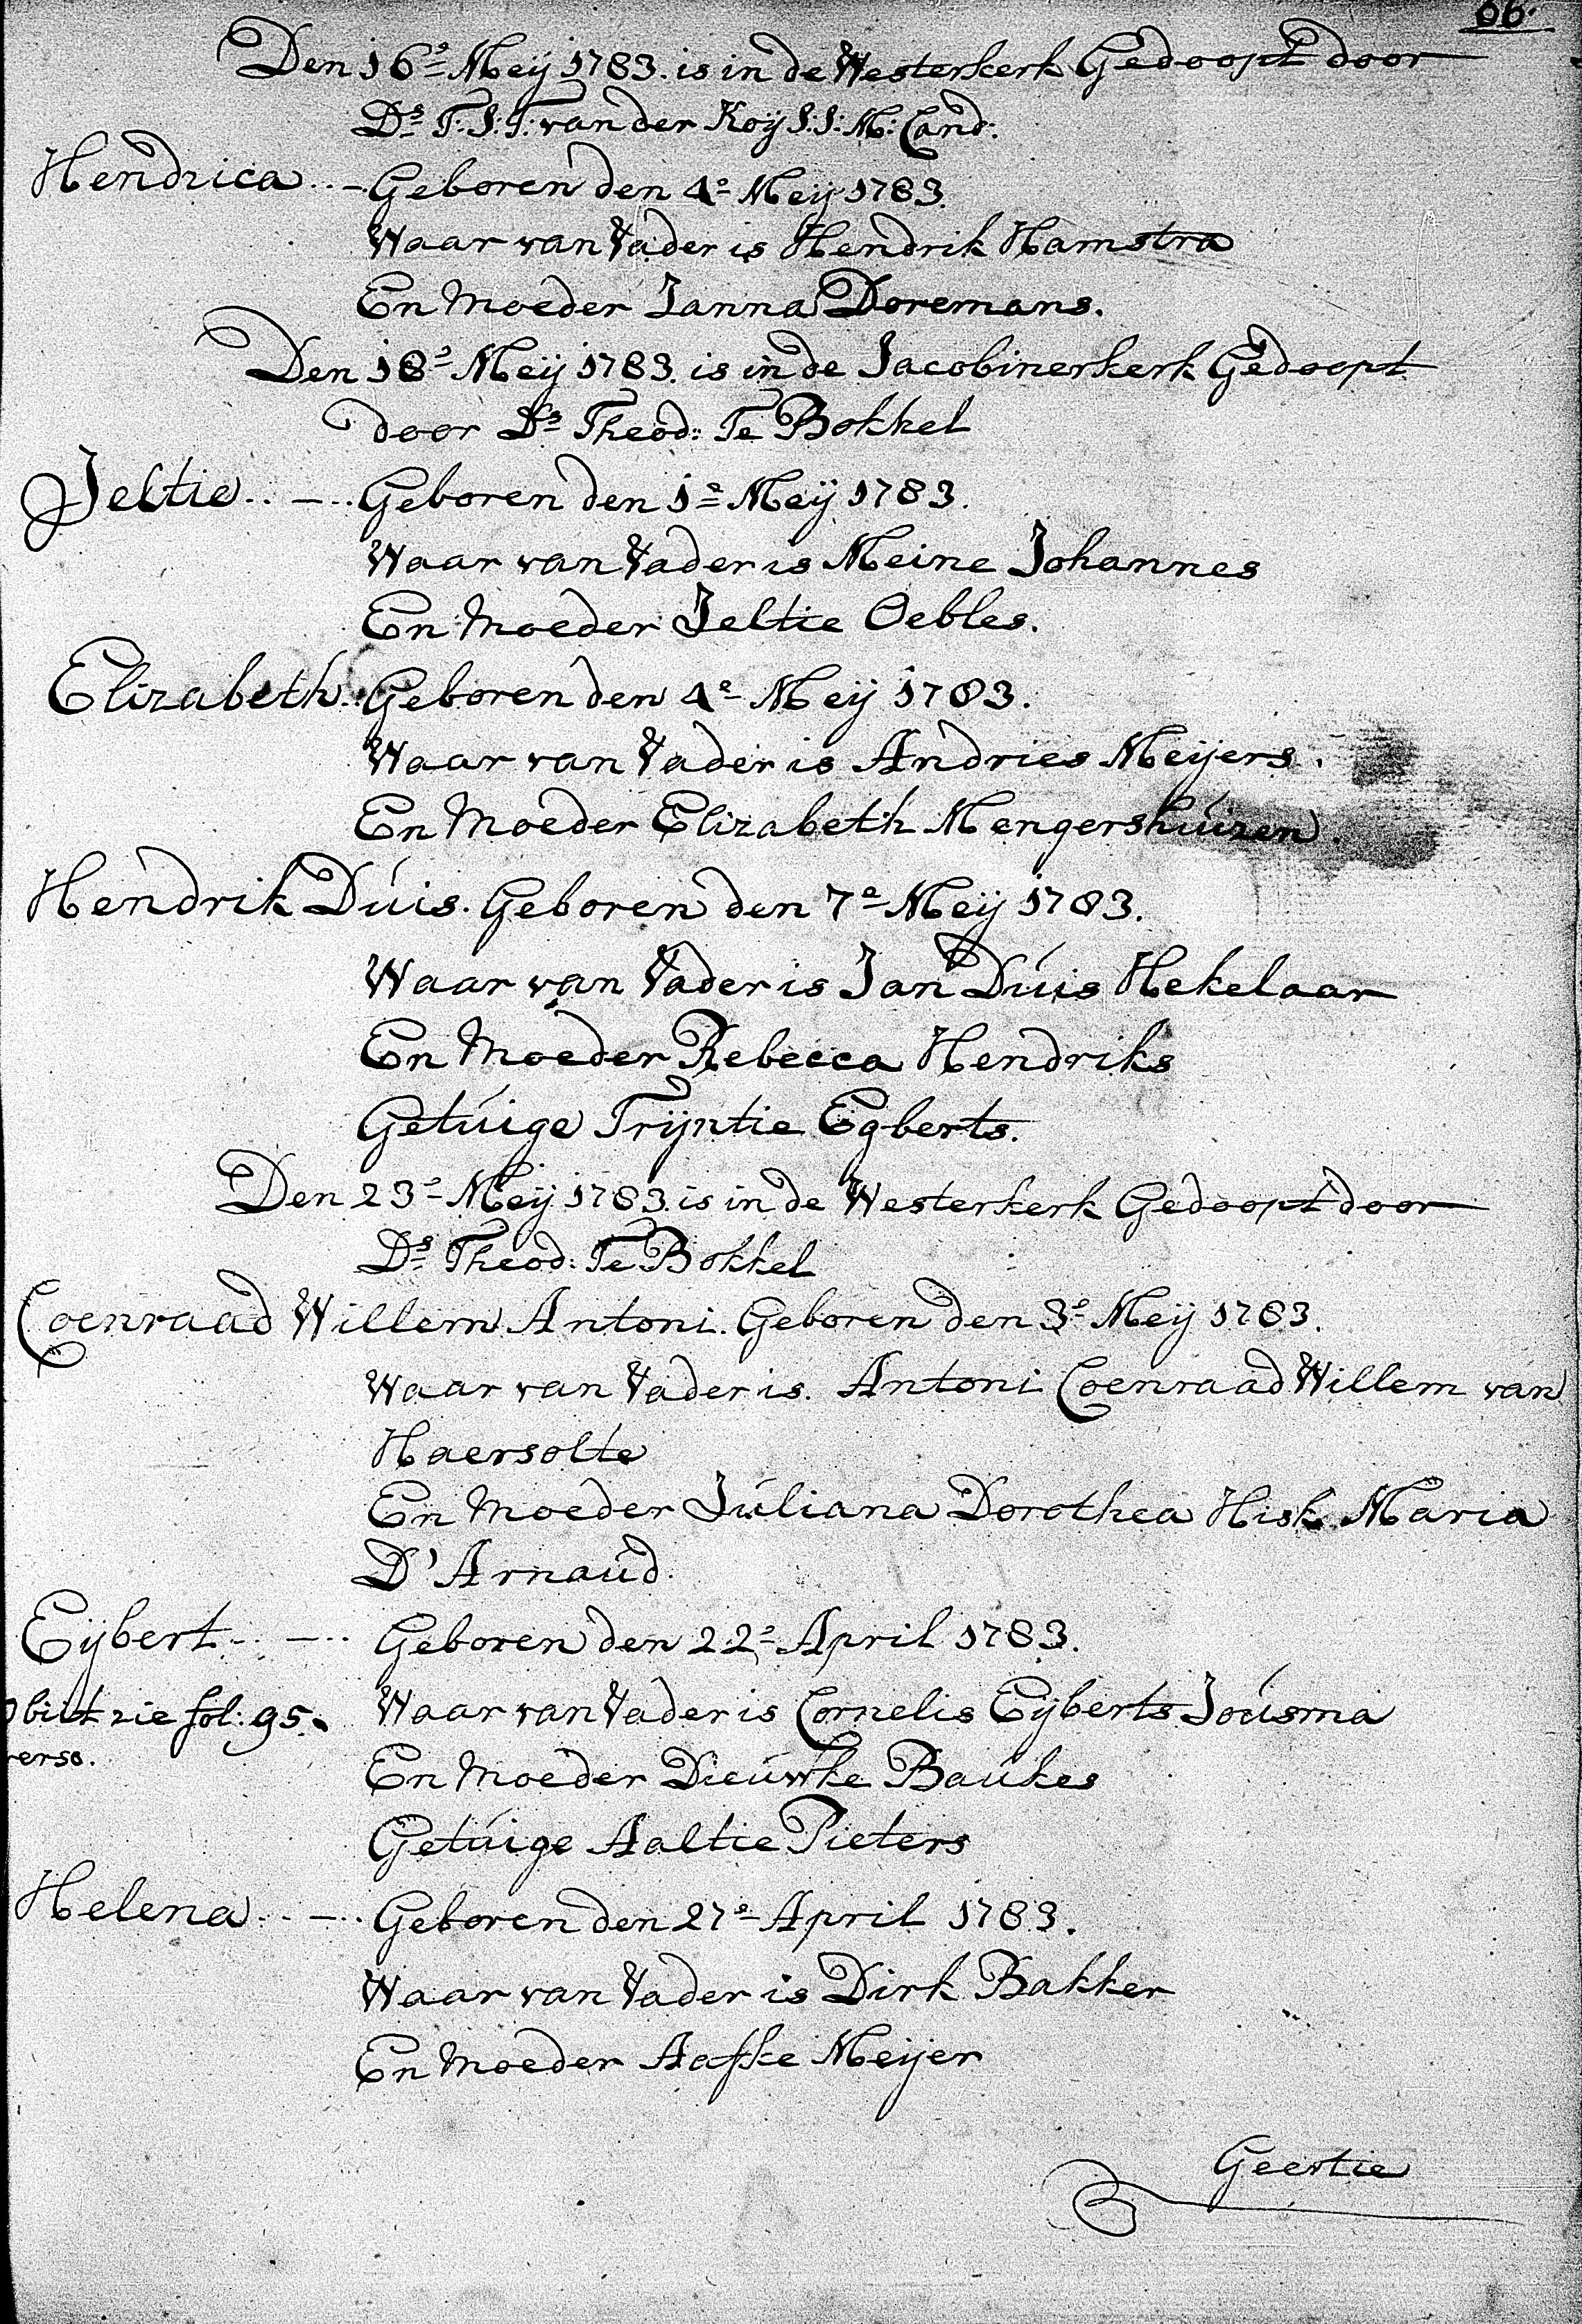 66.
Den 16e Meij 1783. is in de Westerkerk Gedoopt door
Ds T: S: T: van der Koij S: S: M: Cand:
Hendrica .. - Geboren den 4e Meij 1783.
Waar van Vader is Hendrik Hamstra
En Moeder Janna Doremans.
Den 18e Meij 1783. is in de Jacobinerkerk Gedoopt
door Ds Theod: Te Bokkel
Jeltie .. - .. Geboren den 1e Meij 1783.
Waar van Vader is Meine Johannes
En Moeder Jeltie Oebles.
Elizabeth .. Geboren den 4e Meij 1783.
Waar van Vader is Andries Meijers.
En Moeder Elizabeth Mengershúizen.
Hendrik Dúis. Geboren den 7e Meij 1783.
Waar van Vader is Jan Dúis Hekelaar
En Moeder Rebecca Hendriks
Getúige Trijntie Egberts.
Den 23e Meij 1783. is in de Westerkerk Gedoopt door
Ds Theod: Te Bokkel
Coenraad Willem Antoni. Geboren den 3e Meij 1783.
Waar van Vader is. Antoni Coenraad Willem van
Haersolte
En Moeder Júliana Dorothea Hisk. Maria
D'Arnaúd.
Eijbert .. - .. Geboren den 22e April 1783.
obiit zie fol: 95. Waar van Vader is Cornelis Eijberts Joúsma
verso.
En Moeder Dieúwke Baúkes
Getúige Aaltie Pieters
Helena .. - .. Geboren den 27e April 1783.
Waar van Vader is Dirk Bakker
En Moeder Aafke Meijer
Geertie